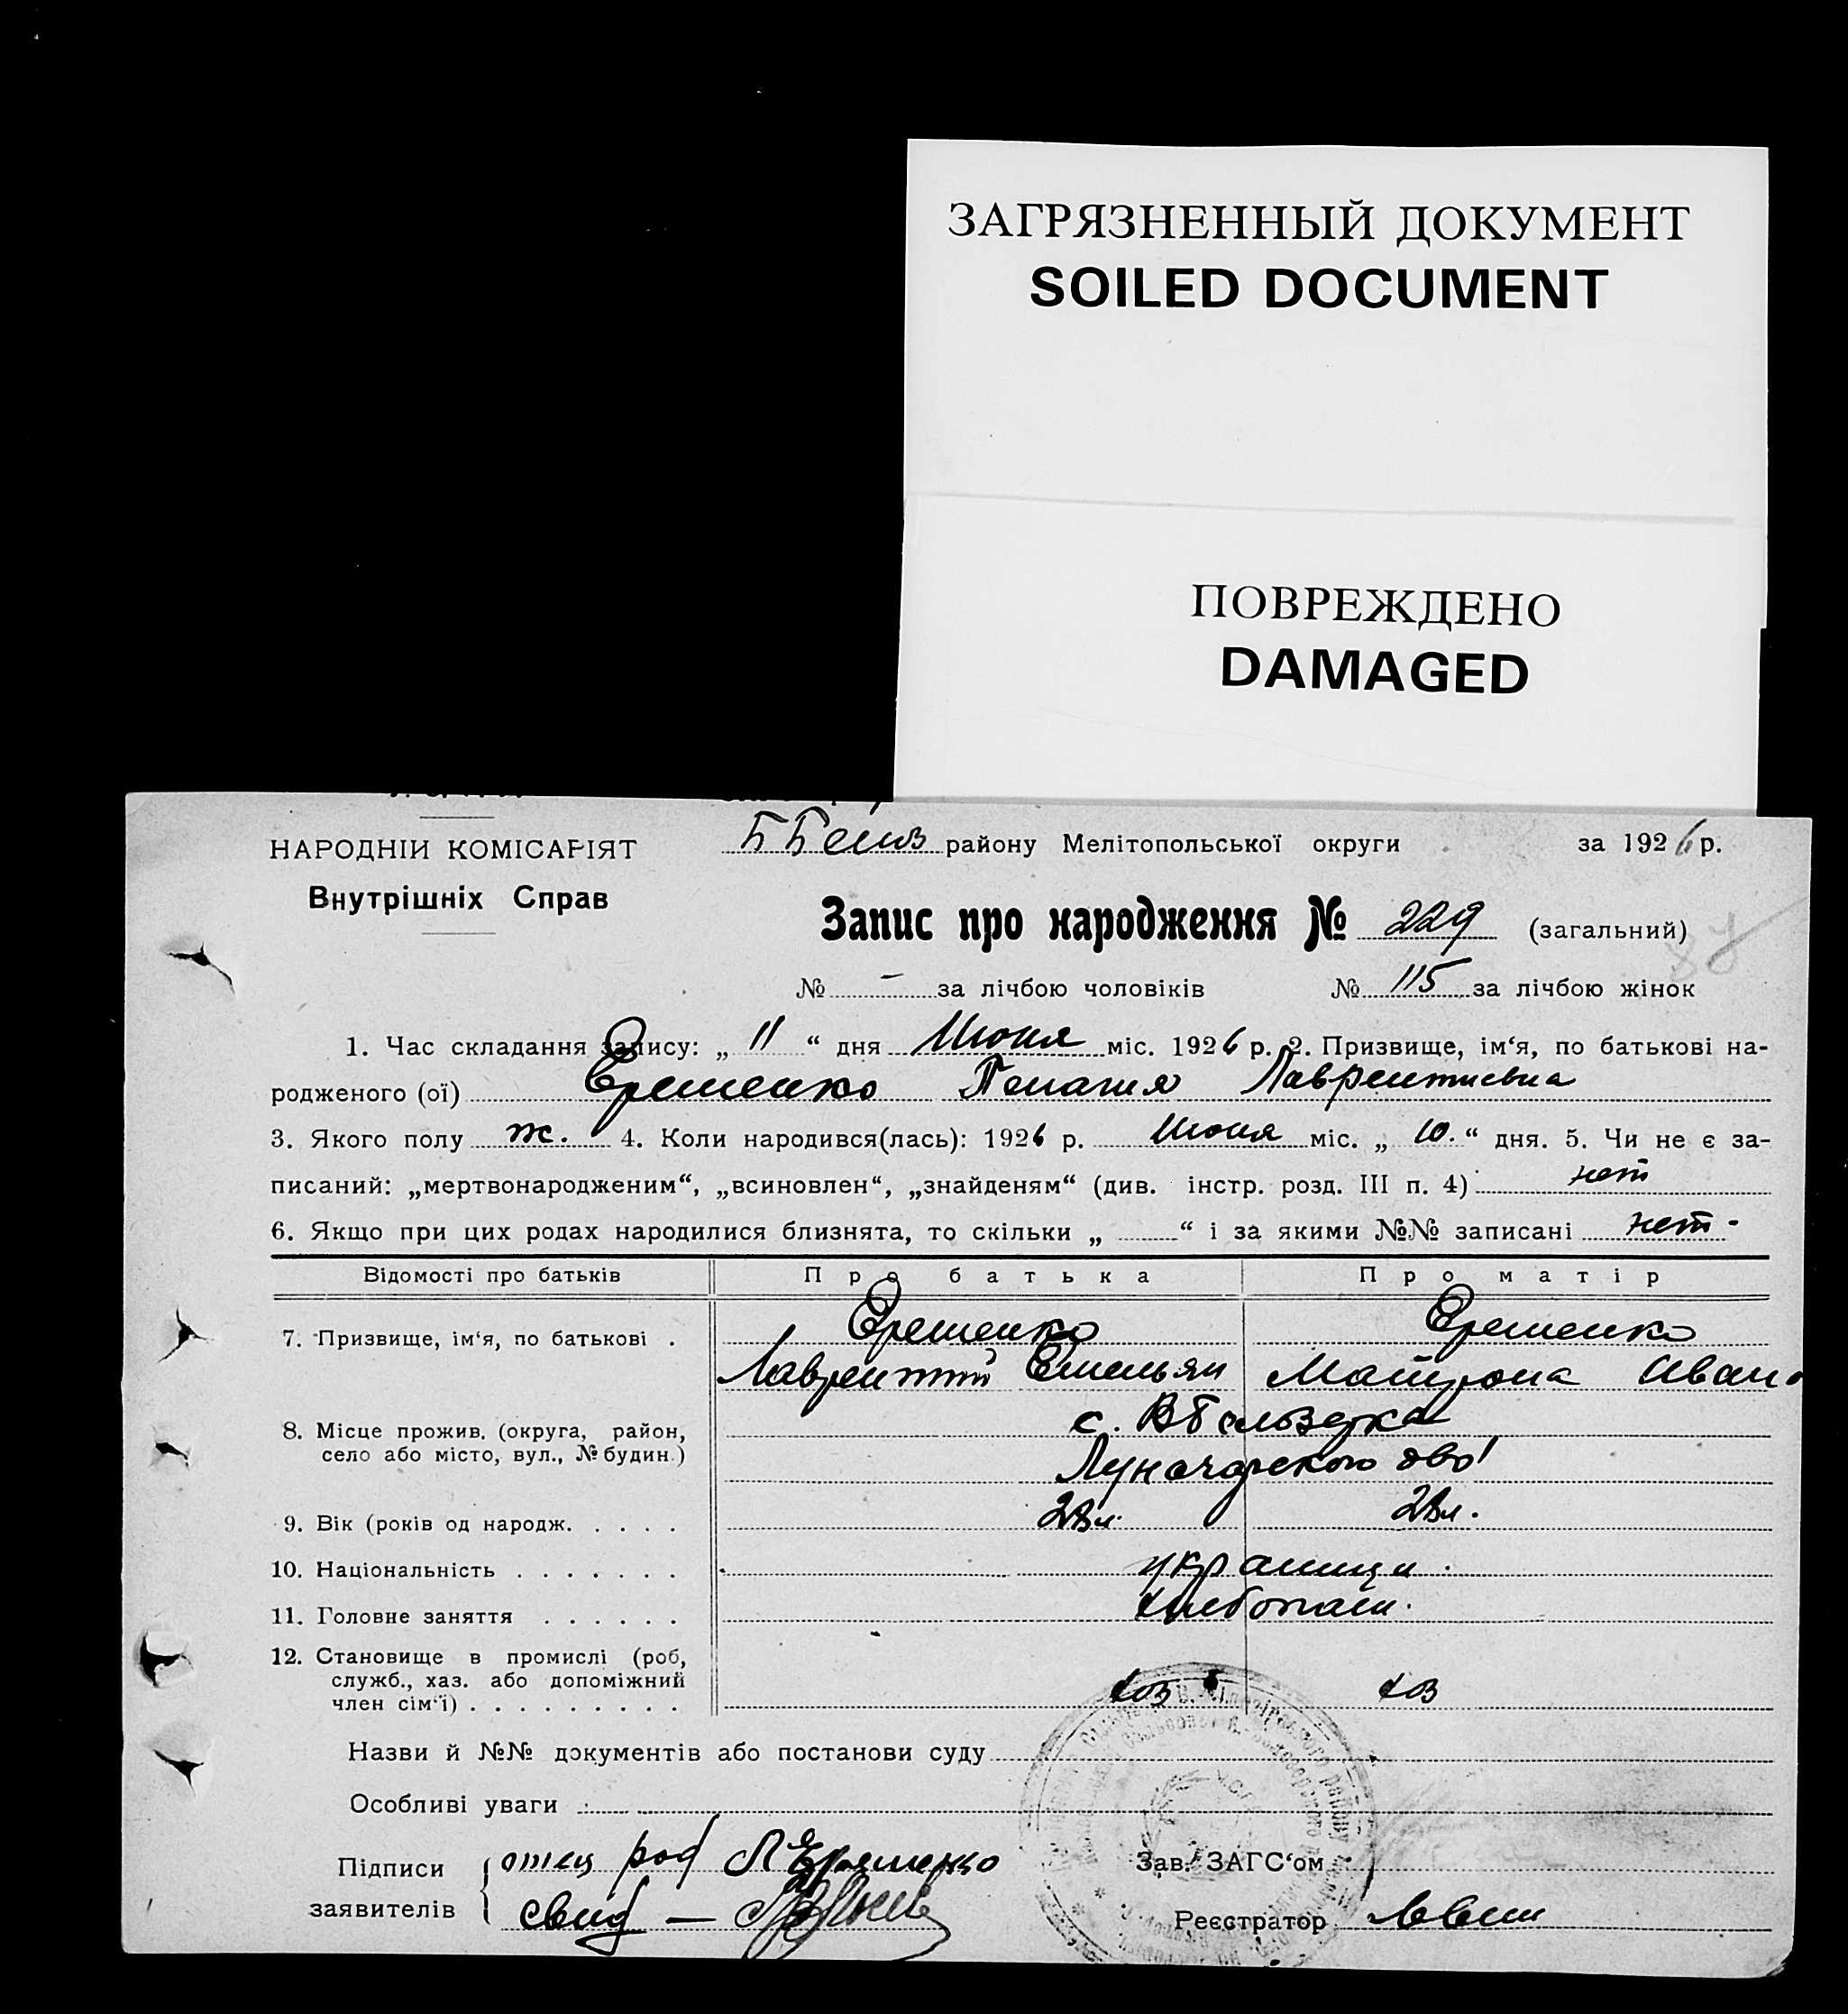 ЗАГРЯЗНЕННЫЙ ДОКУМЕНТ
SOILED DOCUMENT
ПОВРЕЖДЕНО
DAMAGED
НАРОДНІЙ КОМІСАРІЯТ
Внутрішніх Справ
району Мелітопольської округи за 1926 р.
Запис про народження № 229 (загальний)
№ - за лічбою чоловіків № 115 за лічбою жінок
1. Час складання запису: „ 11 “ дня Июня міс. 1926 р. 2. Призвище, ім‘я, по батькові на-
родженого (ої) Ерешенко Пелагия Лаврентиевна
3. Якого полу ж. 4. Коли народився(лась): 1926 р. Июня міс. „ 10. “ дня. 5. Чи не є за-
писаний: „мертвонародженим“, „всиновлен“, „знайденям“ (див. інстр. розд. III п. 4) нет
6. Якщо при цих родах народилися близнята, то скільки „ “ і за якими №№ записані нет -
Відомості про батьків Про батька Про матір
7. Призвище, ім‘я, по батькові . Ерешенко Ерешенко
Лаврентий Емельян Матрона Ивано
8. Місце прожив. (округа, район,
село або місто, вул., № будин.)
с. ВБелозерка
Луначарского
9. Вік (років од народж. . . . . 28 л. 28 л.
10. Національність . . . . . . .
11. Головне заняття . . . . . . хлебопаш.
12. Становище в промислі (роб,
служб., хаз. або допоміжний
член сім‘ї) . . . . . . . . . хоз хоз
Назви й №№ документів або постанови суду
Особливі уваги
Підписи заявителів
отец род Л Ерешенко
свид —
Зав. ЗАГС‘ом
Реєстратор